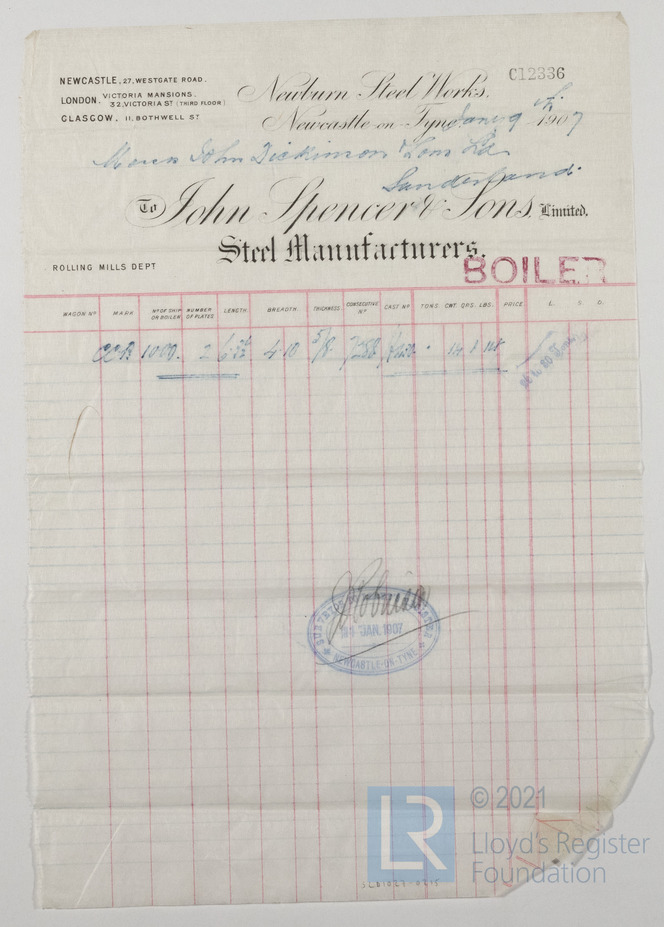 NEWCASTLE, 27, WESTGATE ROAD.
LONDON. VICTORIA MANSIONS.
32, VICTORIA ST (THIRD FLOOR)
GLASGOW. 11, BOTHWELL ST
C12336
Newburn Steel Works.
Newcastle-on-Tyne Jany 9th 1907
Messrs John Dickinson & Sons Ld
Sunderland.
To John Spencer & Sons, Limited.
Steel Manufacturers.
ROLLING MILLS DEPT
BOILER
WAGON No MARK No OF SHIP OR BOILER NUMBER OF PLATES LENGTH. BREADTH. THICKNESS CONSECUTIVE No CAST No TONS. CWT. QRS. LBS. PRICE £. S. D.
1000. 2 4.10 5/8 7288 14 1
JAN. 1907
NEWCASTLE-ON-TYNE
LR
© 2021
Lloyd's Register
Foundation